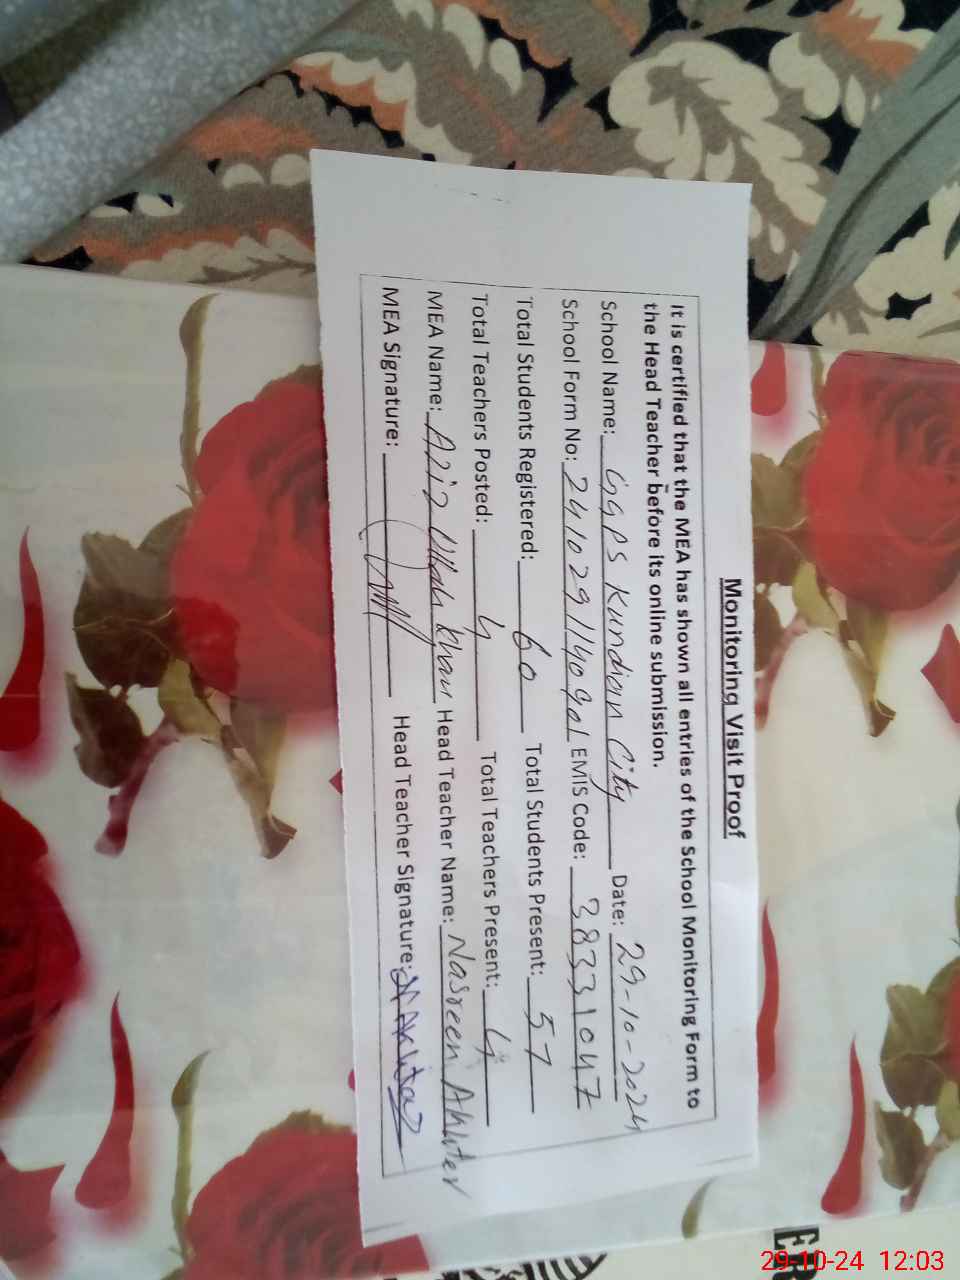 Monitoring Visit Proof
It is certified that the MEA has shown all entries of the School Monitoring Form to
the Head Teacher before its online submission.
School Name: GGPS Kundian City Date: 29-10-2024
School Form No: EMIS Code: 38331047
Total Students Registered: 60 Total Students Present: 57
Total Teachers Posted: 4 Total Teachers Present: 4
MEA Name: Aziz Ullah Khan Head Teacher Name: Nasreen Akhter
MEA Signature: Head Teacher Signature: N Akhtar
ER
29-10-24 12:03